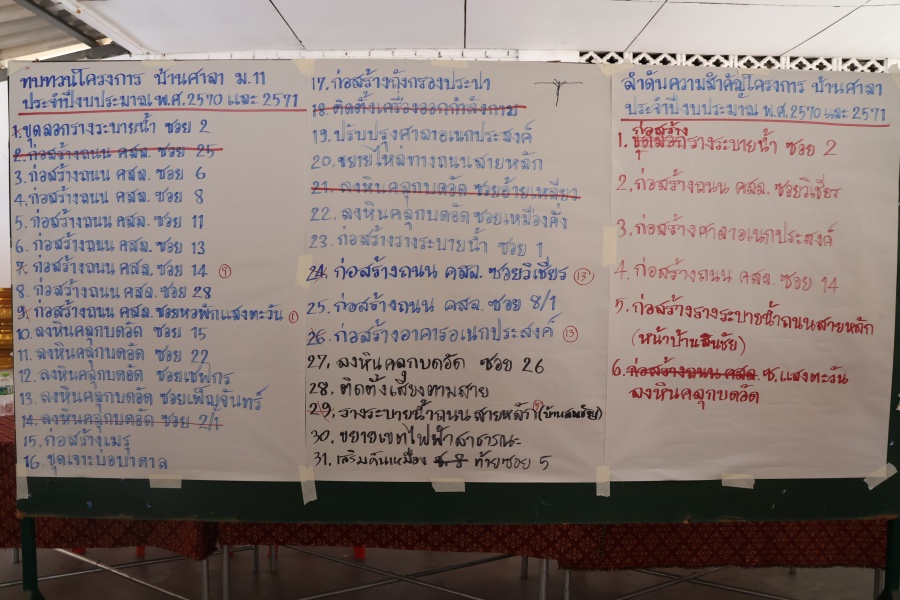 ทบทวนโครงการ บ้านศาลา ม.11
ประจำปีงบประมาณ พ.ศ.2570 และ 2571
1.ขุดลอกรางระบายน้ำ ซอย 2
2.ก่อสร้างถนน คสล. ซอย 25
3.ก่อสร้างถนน คสล. ซอย 6
4.ก่อสร้างถนน คสล. ซอย 8
5.ก่อสร้างถนน คสล. ซอย 11
6.ก่อสร้างถนน คสล. ซอย 13
7.ก่อสร้างถนน คสล. ซอย 14
8.ก่อสร้างถนน คสล. ซอย 28
9.ก่อสร้างถนน คสล. ซอยหอพักแสงตะวัน
10.ลงหินคลุกบดอัด ซอย 15
11.ลงหินคลุกบดอัด ซอย 22
12.ลงหินคลุกบดอัด
13.ลงหินคลุกบดอัด ซอยเพ็ญจันทร์
14.ลงหินคลุกบดอัด ซอย 2/1
15.ก่อสร้างเมรุ
16.ขุดเจาะบ่อบาดาล
17.ก่อสร้างถังกรองประปา
18.ติดตั้งเครื่องออกกำลังกาย
19.ปรับปรุงศาลาอเนกประสงค์
20.ขยายไหล่ทางถนนสายหลัก
21.ลงหินคลุกบดอัด ซอยอ้ายเหลียว
22.ลงหินคลุกบดอัดซอยเหมืองคั่ง
23.ก่อสร้างรางระบายน้ำ ซอย 1
24.ก่อสร้างถนน คสล. ซอยวิเชียร 13
25.ก่อสร้างถนน คสล. ซอย 8/1
26.ก่อสร้างอาคารอเนกประสงค์ 13
27.ลงหินคลุกบดอัด ซอย 26
28.ติดตั้งเสียงตามสาย
29.รางระบายน้ำถนนสายหลัก
30.ขยายเขตไฟฟ้าสาธารณะ
31.เสริมคันเหมือง ซ.8 ท้ายซอย 5
ลำดับความสำคัญโครงการ บ้านศาลา
ประจำปีงบประมาณ พ.ศ.2570 และ 2571
ก่อสร้าง
1.ขุดลอกรางระบายน้ำ ซอย 2
2.ก่อสร้างถนน คสล. ซอยวิเชียร
3.ก่อสร้างศาลาอเนกประสงค์
4.ก่อสร้างถนน คสล. ซอย 14
5.ก่อสร้างรางระบายน้ำถนนสายหลัก
(หน้าบ้านสินชัย)
6.ก่อสร้างถนน คสล. ซ.แสงตะวัน
ลงหินคลุกบดอัด